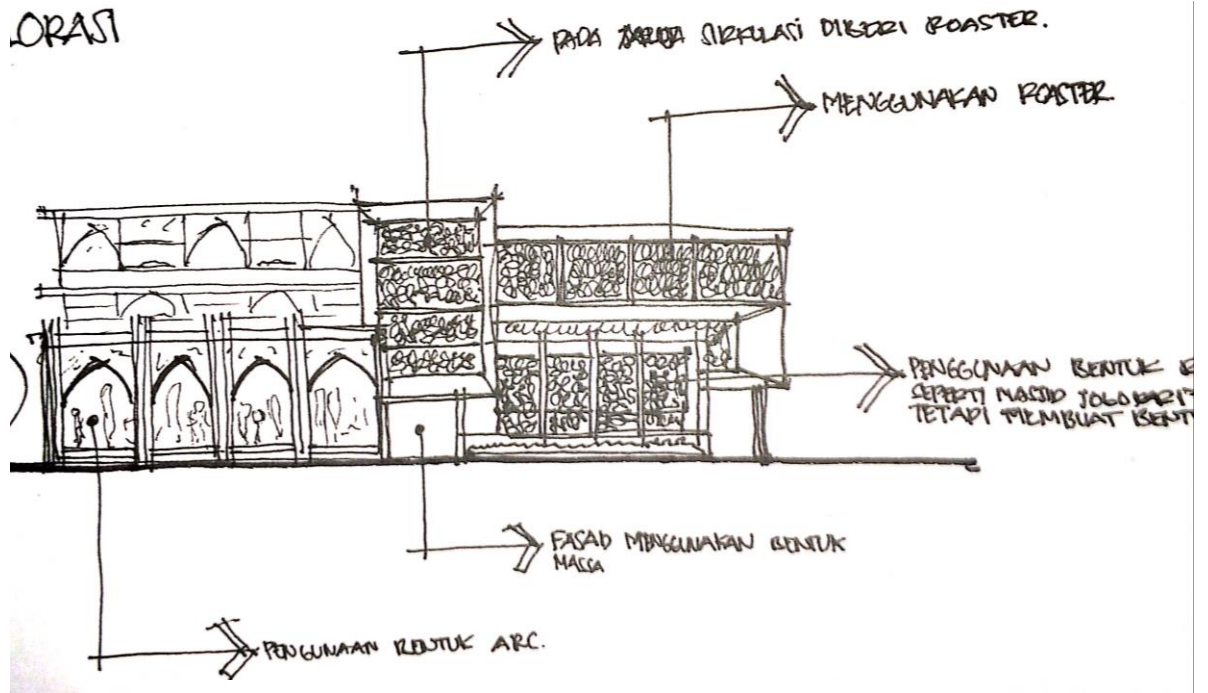 LORASI
PADA SIRKULASI DIBERI ROASTER.
MENGGUNAKAN ROASTER.
PENGGUNAAN BENTUK
SEPERTI MASJID JOGOKARI
TETAPI MEMBUAT BENT
FASAD MENGGUNAKAN BENTUK
MASSA
PENGUNAAN BENTUK ARC.